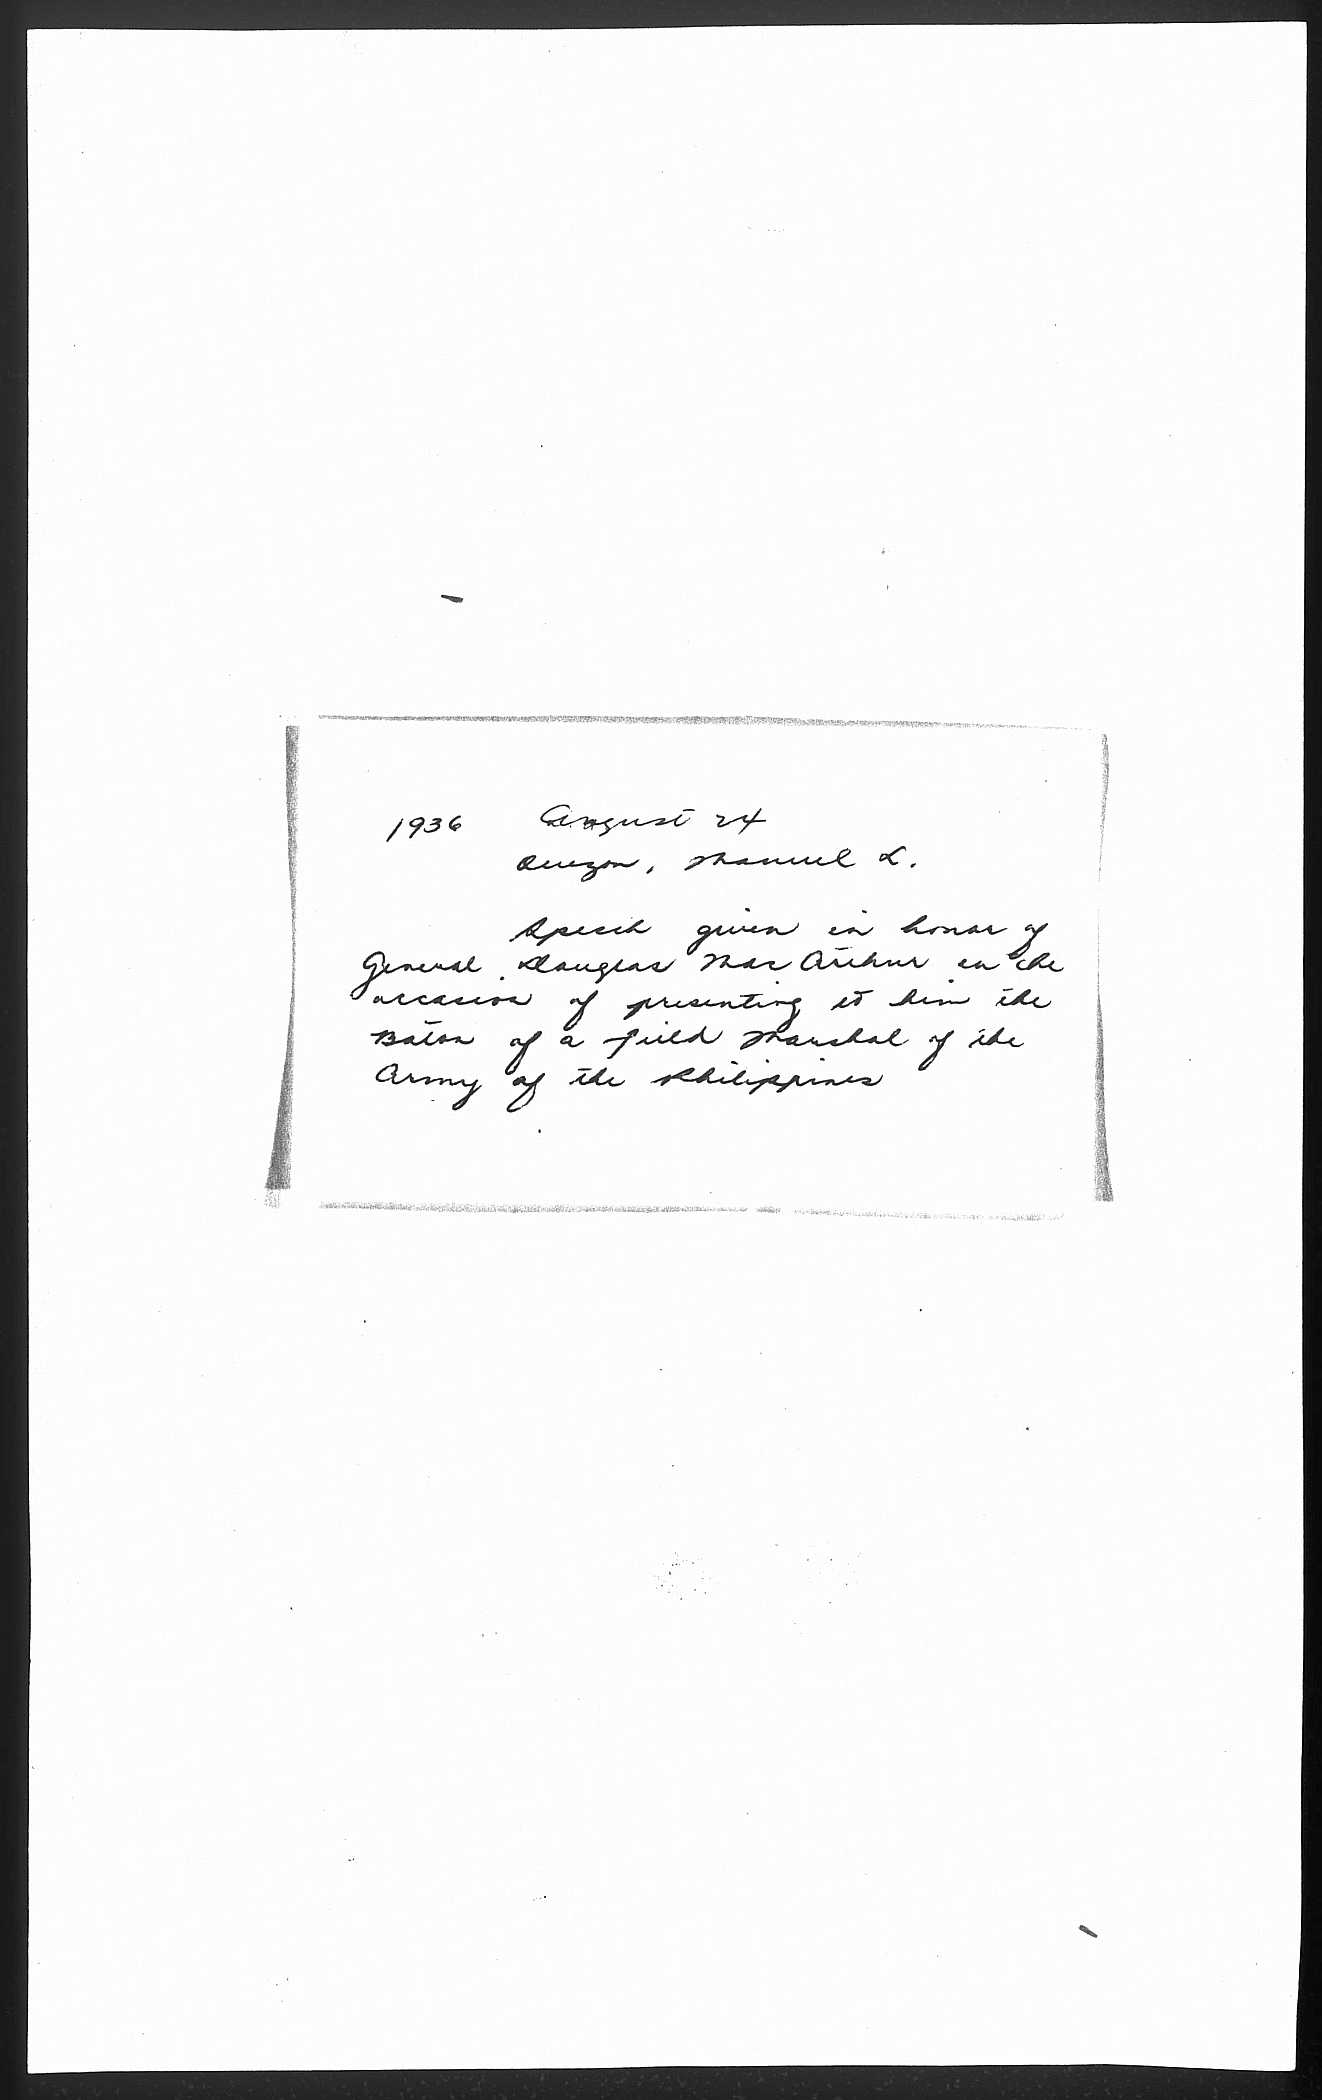 1936 August 24
Quezon, Manuel L.
Speech given in honor of
General Douglas MacArthur on the
occasion of presenting to him the
Baton of a Field Marshal of the
Army of the Philippines